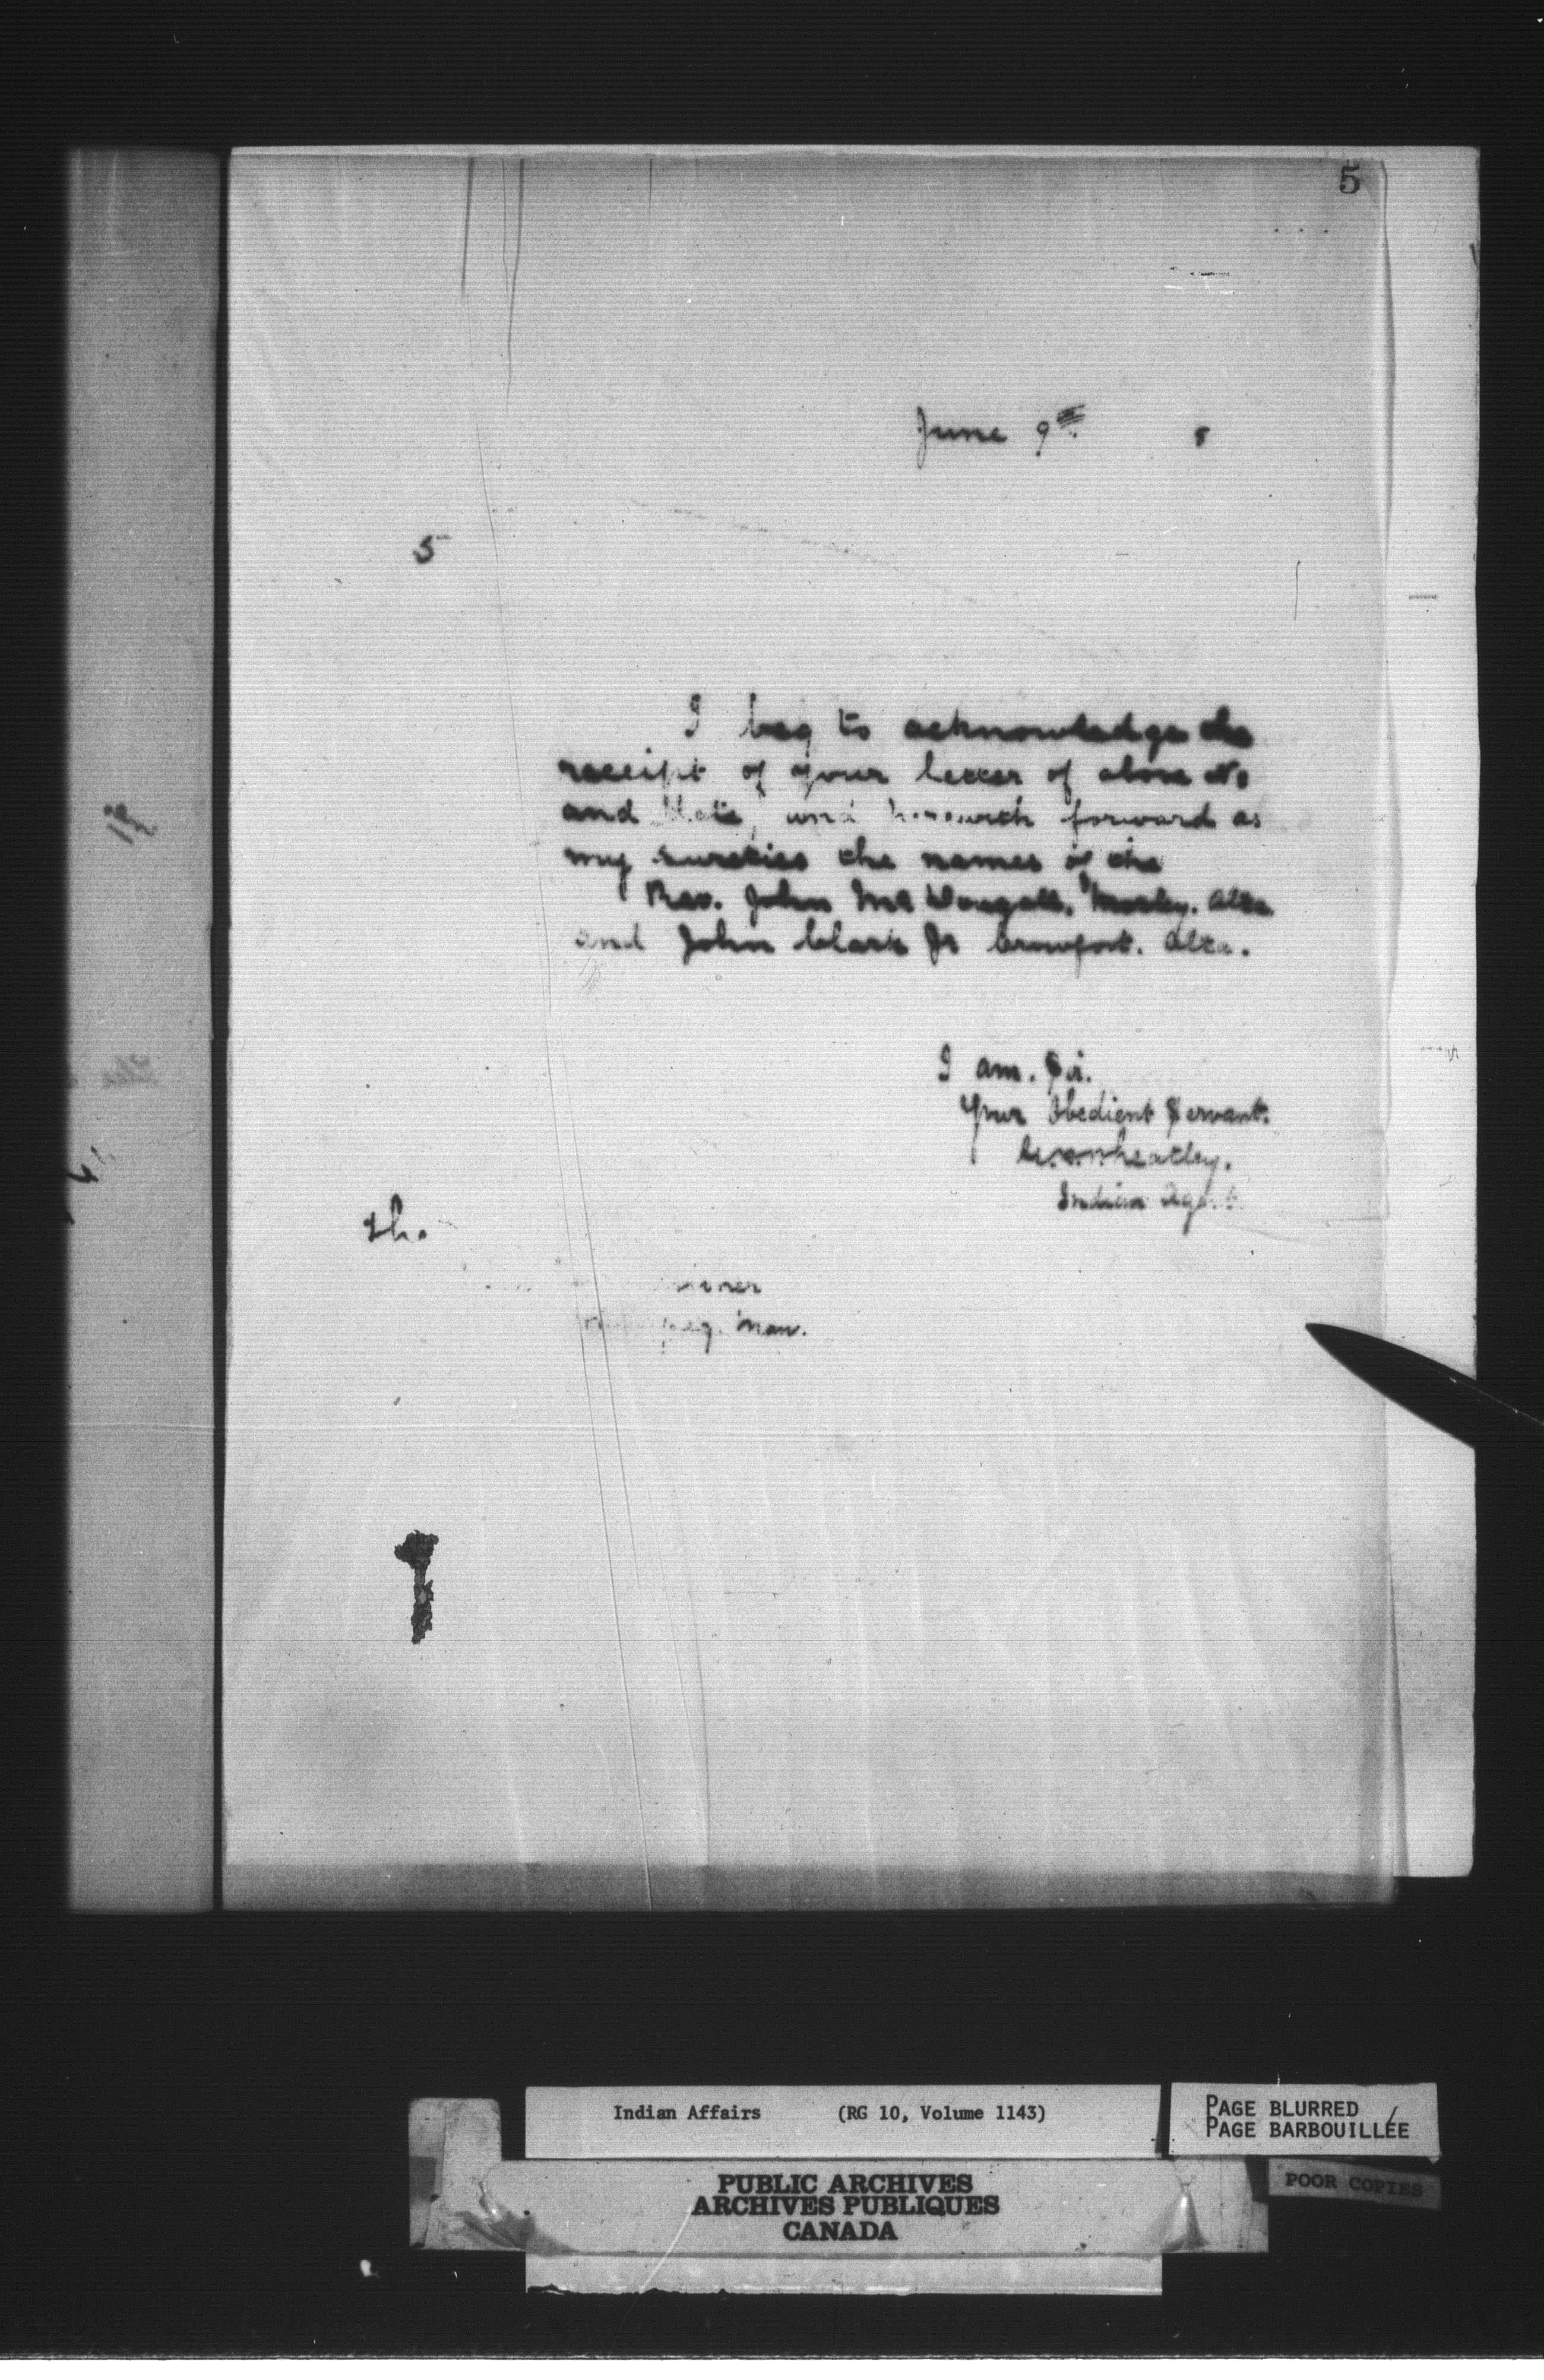 5
June 9th
5
I beg to acknowledge the
receipt of your letter of above No
and date, and herewith forward as
my sureties the names of the
Rev. John McDougall, Morley. Alta
and John Clark Jr Crowfoot. Alta.
I am. Sir.
Your Obedient Servant.
Wheatley.
Indian Agent
The
Man.
Indian Affairs (RG 10, Volume 1143)
PAGE BLURRED
PAGE BARBOUILLÉE
PUBLIC ARCHIVES
ARCHIVES PUBLIQUES
CANADA
POOR COPIES